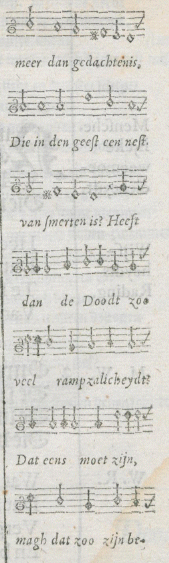 meer dan gedachtenis.
Die in den geeſt een neſt.
van ſmerten is? Heeft
dan de Doodt zoo
veel rampzalicheydt?
Dat eens moet zijn,
magh dat zoo zijn be-